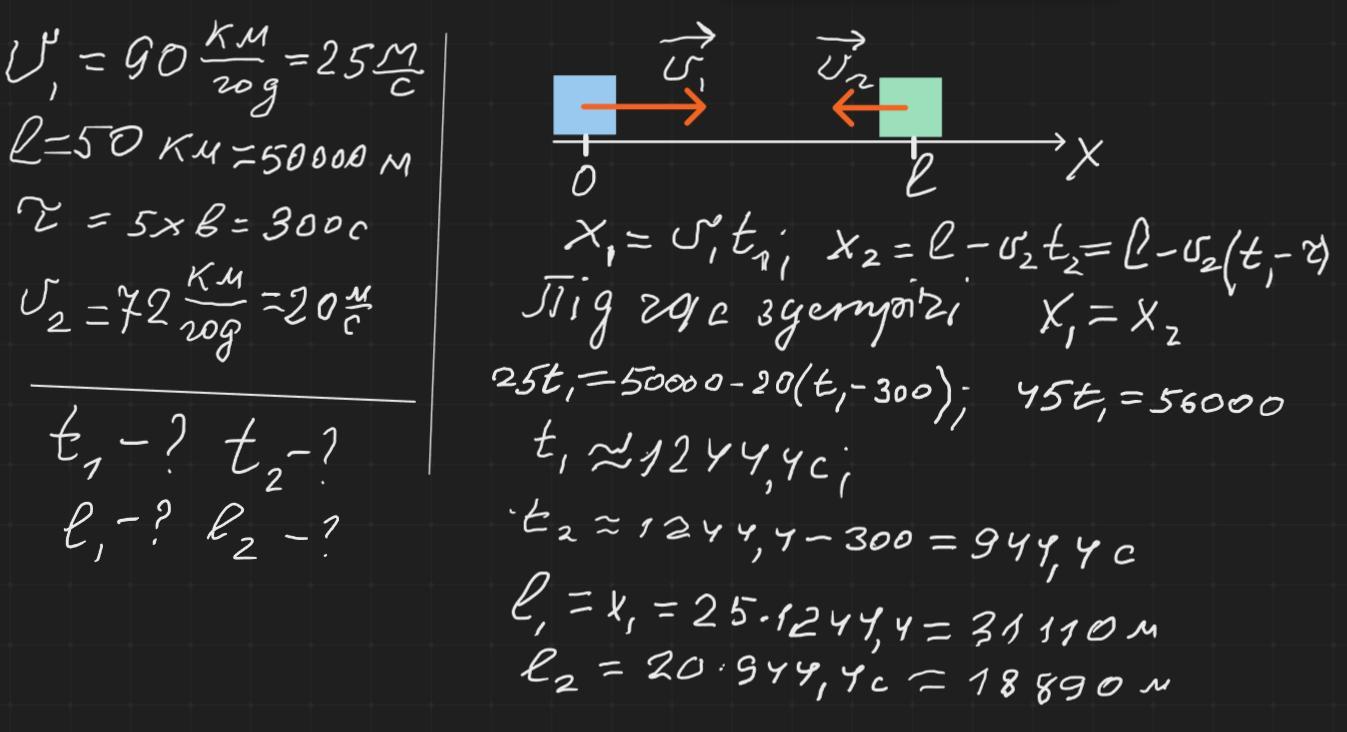 υ₁ = 90 км/год = 25 м/с
l = 50 км = 50000 м
τ = 5 хв = 300 с
υ₂ = 72 км/год = 20 м/с
t₁ - ? t₂ - ?
l₁ - ? l₂ - ?
υ₁ υ₂
0 l X
x₁ = υ₁t₁; x₂ = l - υ₂t₂ = l - υ₂(t₁ - τ)
Під час зустрічі x₁ = x₂
25t₁ = 50000 - 20(t₁ - 300); 45t₁ = 56000
t₁ ≈ 1244,4 с;
t₂ ≈ 1244,4 - 300 = 944,4 с
l₁ = x₁ = 25·1244,4 = 31110 м
l₂ = 20·944,4 с = 18890 м